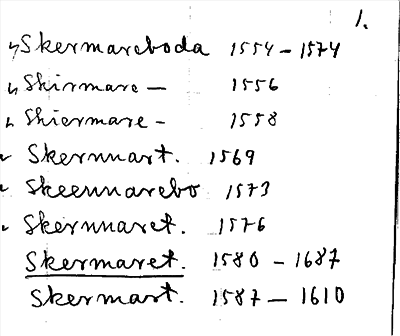 1.
Skermareboda 1554 - 1574
Skirmare - 1556
Skiermare - 1558
Skernmart. 1569
Skeenmarebo 1573
Skernmaret. 1576
Skermaret. 1580 - 1687
Skermart. 1587 - 1610